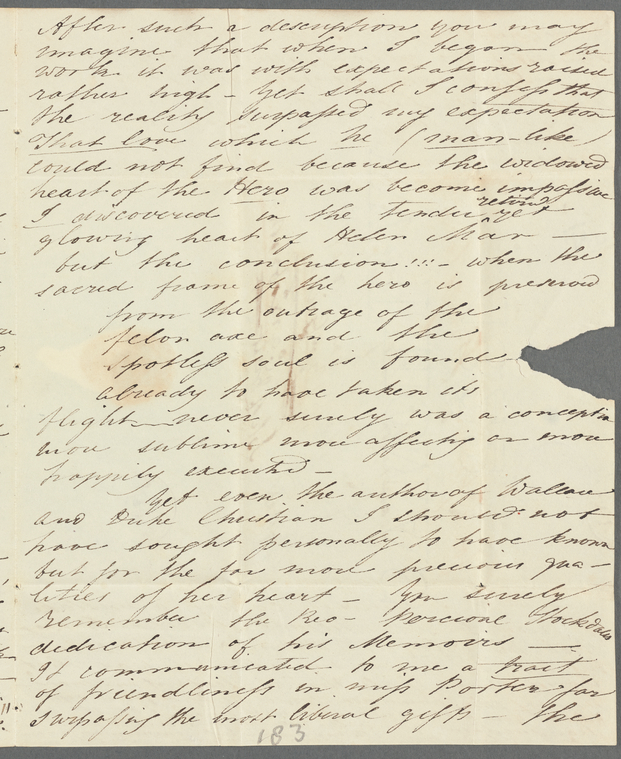 After such a description you may
imagine that when I began the
work it was with expectations raised
rather high – Yet shall I confess that
the reality surpassed my expectation
That love which he (man-like)
could not find because the widowed
heart of the Hero was become impassive
I discovered in the tender yet
retired
glowing heart of Helen Mar —
but the conclusion!!! – when the
sacred frame of the hero is preserved
from the outrage of the
felon axe and the
spotless soul is found
already to have taken its
flight — never surely was a conception
more sublime more affecting or more
happily executed –
Yet even the author of Wallace
and Duke Christian I should not
have sought personally to have known
but for the far more precious qua-
lities of her heart – You surely
remember the Rev– Percival Stockdales
dedication of his Memoirs —
It communicated to me a trait
of friendliness in miss Porter far
surpassing the most liberal gifts – the
183